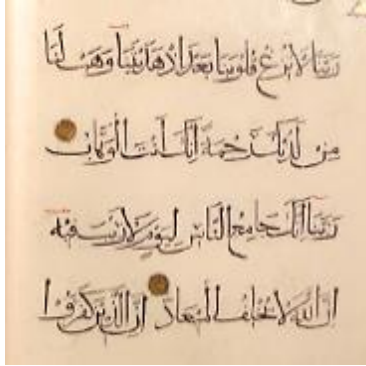 ربنا لا تزغ قلوبنا بعد اذ هديتنا وهب لنا
من لدنك رحمة انك انت الوهاب
ربنا انك جامع الناس ليوم لا ريب فيه
ان الله لا يخلف الميعاد ان الذين كفروا